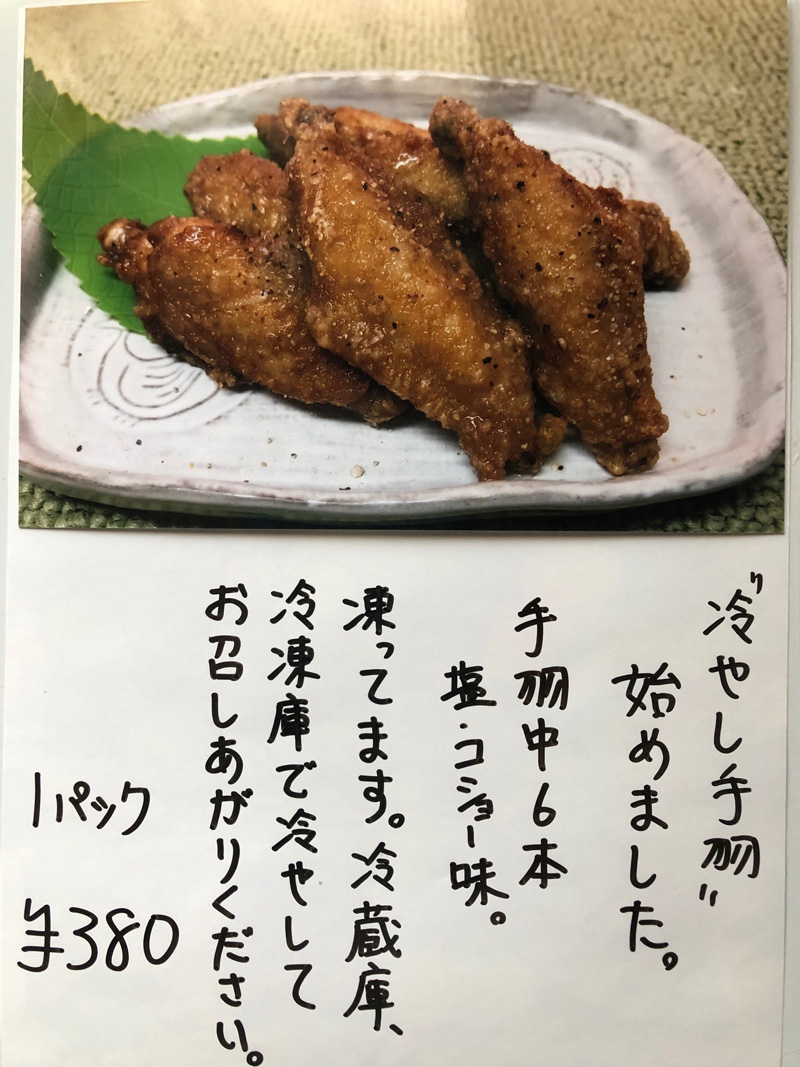 "冷やし手羽"
始めました。
手羽中6本
塩・コショー味。
凍ってます。冷蔵庫、
冷凍庫で冷やして
お召しあがりください。
1パック
¥380